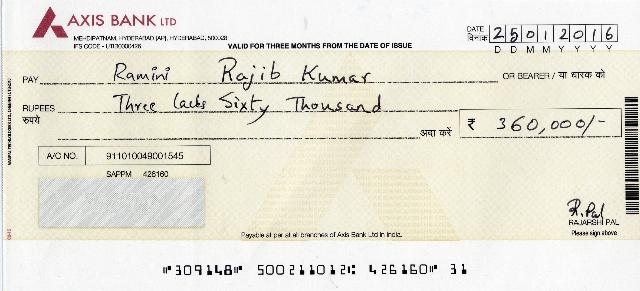 AXIS BANK LTD
MEHDIPATNAM, HYDERABAD [AP], HYDERABAD, 500028
IFS CODE - UTIB0000426
VALID FOR THREE MONTHS FROM THE DATE OF ISSUE
DATE दिनांक 25012016
D D M M Y Y Y Y
PAY Ramini Rajib Kumar OR BEARER / या धारक को
RUPEES रुपये Three lacks Sixty Thousand
अदा करें ₹ 360,000/-
A/C NO. 911010049001545
SAPPM 426160
R.Pal
RAJARSHI PAL
Please sign above
Payable at par at all branches of Axis Bank Ltd in India.
⑈309148⑈ 500211012⑆ 426160⑈ 31